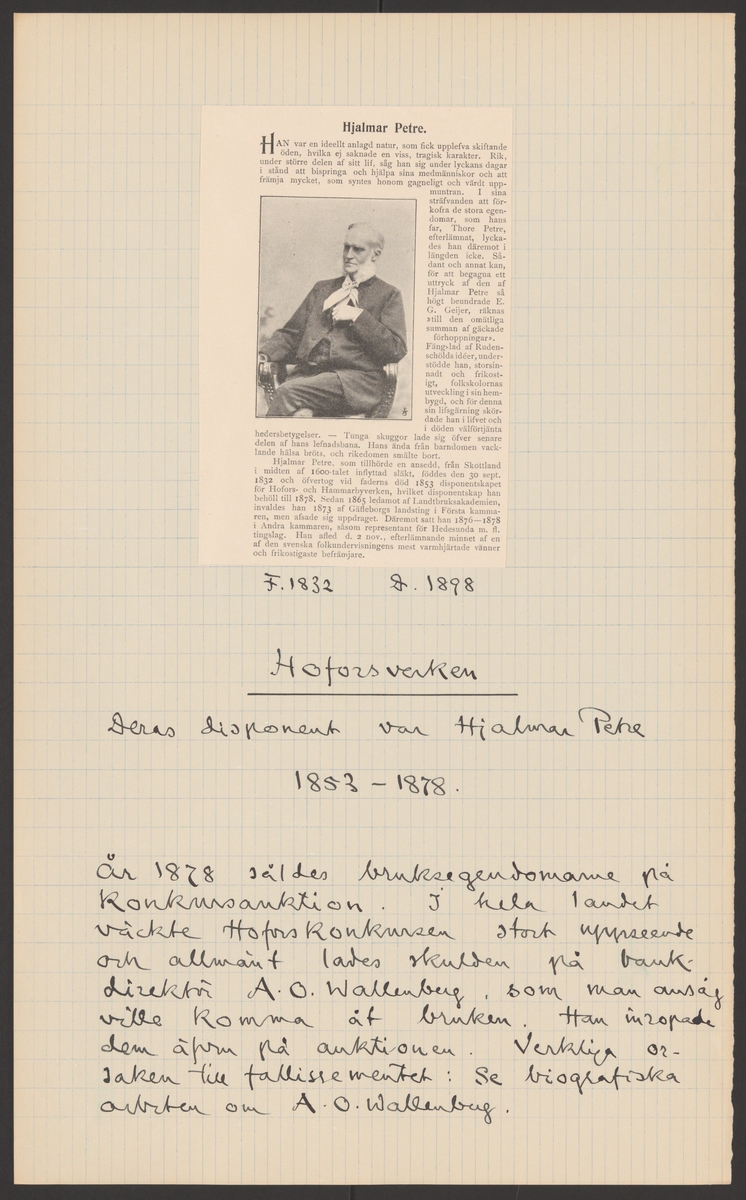 Hjalmar Petre.
HAN var en ideellt anlagd natur, som fick upplefva skiftande
öden, hvilka ej saknade en viss, tragisk karakter. Rik,
under större delen af sitt lif, såg han sig under lyckans dagar
i stånd att bispringa och hjälpa sina medmänniskor och att
främja mycket, som syntes honom gagneligt och värdt upp-
muntran. I sina
sträfvanden att för-
kofra de stora egen-
domar, som hans
far, Thore Petre,
efterlämnat, lycka-
des han däremot i
längden icke. Så-
dant och annat kan,
för att begagna ett
uttryck af den af
Hjalmar Petre så
högt beundrade E.
G. Geijer, räknas
»till den omätliga
summan af gäckade
förhoppningar».
Fängslad af Ruden-
schölds idéer, under-
stödde han, storsin-
nadt och frikost-
igt, folkskolornas
utveckling i sin hem-
bygd, och för denna
sin lifsgärning skör-
dade han i lifvet och
i döden välförtjänta
hedersbetygelser. — Tunga skuggor lade sig öfver senare
delen af hans lefnadsbana. Hans ända från barndomen vack-
lande hälsa bröts, och rikedomen smälte bort.
Hjalmar Petre, som tillhörde en ansedd, från Skottland
i midten af 1600-talet inflyttad släkt, föddes den 30 sept.
1832 och öfvertog vid faderns död 1853 disponentskapet
för Hofors- och Hammarbyverken, hvilket disponentskap han
behöll till 1878. Sedan 1865 ledamot af Landtbruksakademien,
invaldes han 1873 af Gäfleborgs landsting i Första kamma-
ren, men afsade sig uppdraget. Däremot satt han 1876—1878
i Andra kammaren, såsom representant för Hedesunda m. fl.
tingslag. Han afled d. 2 nov., efterlämnande minnet af en
af den svenska folkundervisningens mest varmhjärtade vänner
och frikostigaste befrämjare.
F. 1832 D. 1898
Hoforsverken
Deras disponent var Hjalmar Petre
1853 – 1878.
År 1878 såldes bruksegendomarne på
konkursauktion. I hela landet
väckte Hoforskonkursen stort uppseende
och allmänt lades skulden på bank-
direktör A. O. Wallenberg, som man ansåg
ville komma åt bruken. Han inropade
dem äfvn på auktionen. Verkliga or-
saken till fallissementet: Se biografiska
arbeten om A. O. Wallenberg.